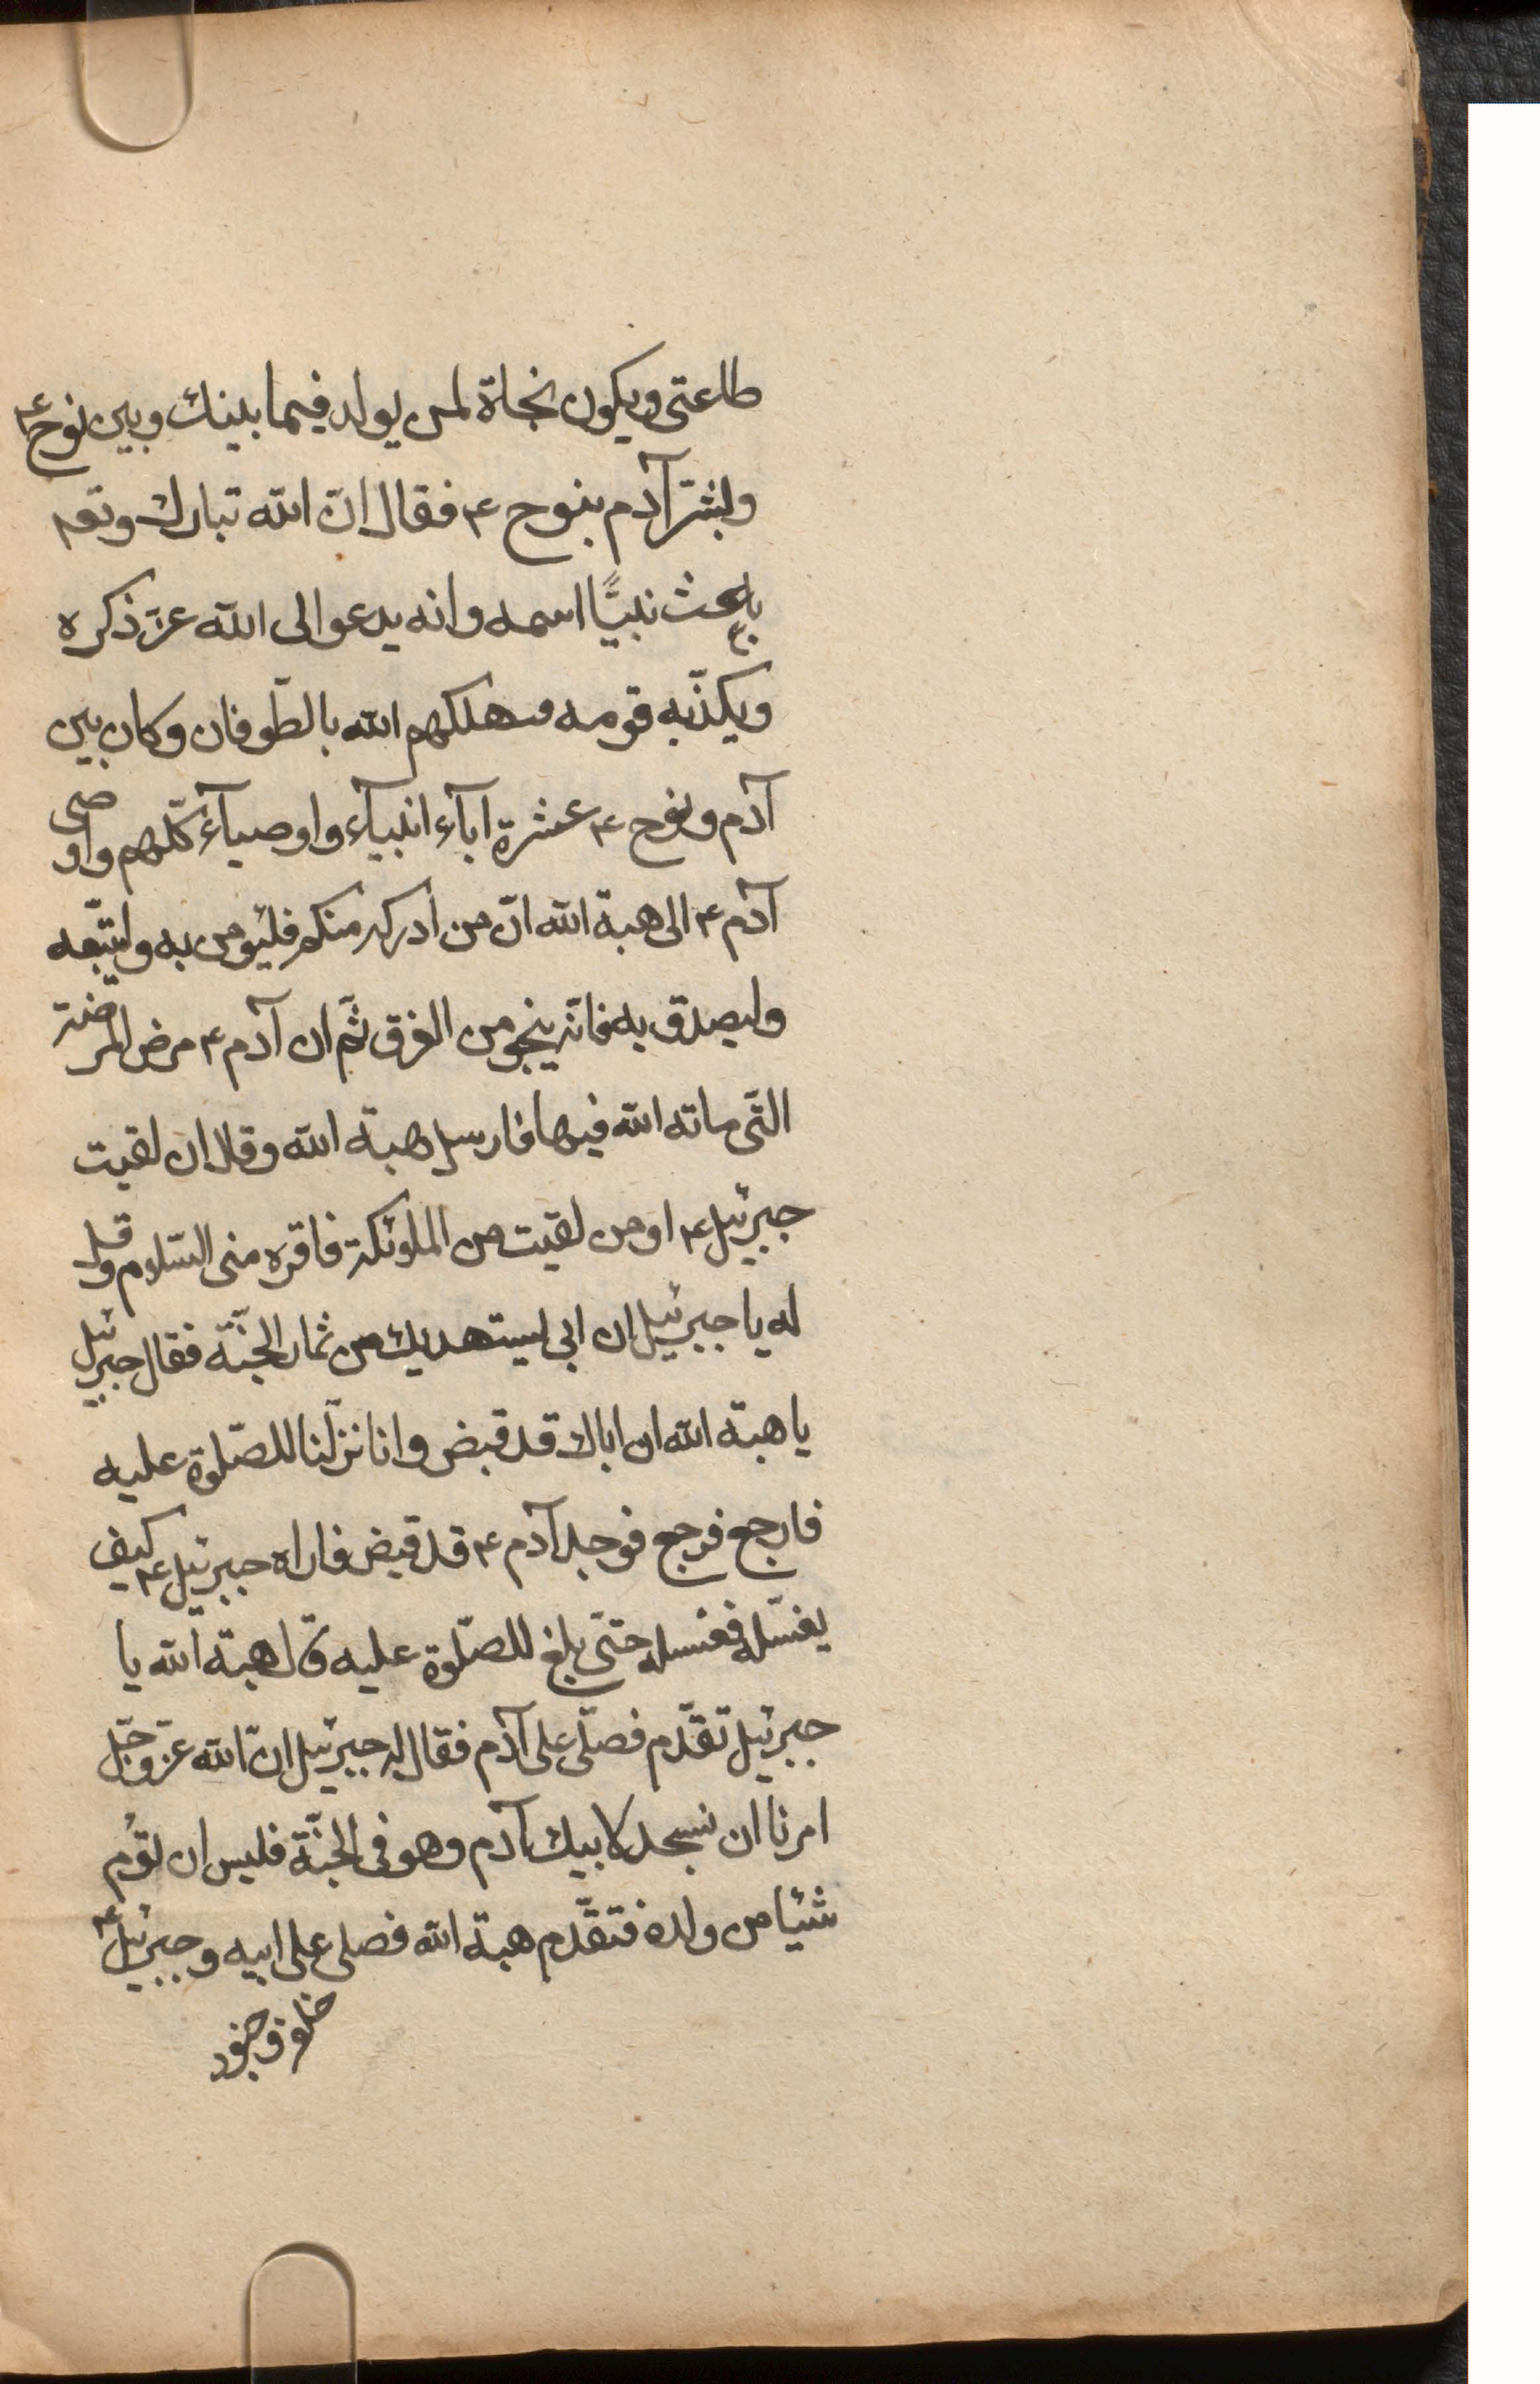 طاعتى ويكون نجاة لمن يولد فيما بينك وبين نوح ع
وبشّر آدم بنوح ع فقال انّ الله تبارك وتعم
باعث نبيًّا اسمه وانه يدعو الى الله عزّ ذكره
ويكذّبه قومه فيهلكهم الله بالطّوفان وكان بين
آدم ونوح ع عشرة آبآء انبيآء واوصيآء كلّهم واوصى
آدم ع الى هبة الله انّ من ادركه منكم فليؤمن به وليتّبعه
وليصدق به فانّه ينجو من الغرق ثمّ ان آدم ع مرض المرضة
التّى ماته الله فيها فارسل هبة الله وقال ان لقيت
جبرئيل ع او من لقيت من الملئكة فاقره منى السّلام وقل
له يا جبرئيل ان ابى ليستهديك من ثمار الجنّة فقال جبرئيل
يا هبة الله ان اباك قد قبض وانا نزلنا للصّلوة عليه
فارجع فرجع فوجد آدم ع قد قبض فاراه جبرئيل ع كيف
يغسّله فغسله حتى بلغ للصّلوة عليه قال هبة الله يا
جبرئيل تقدّم فصلّى على آدم فقال له جبرئيل انّ الله عزّ وجلّ
امرنا ان نسجد لابيك آدم وهو فى الجنّة فليس ان نؤم
شيئا من ولده فتقدّم هبة الله فصلى على ابيه وجبرئيل ع
خلفه وجنود